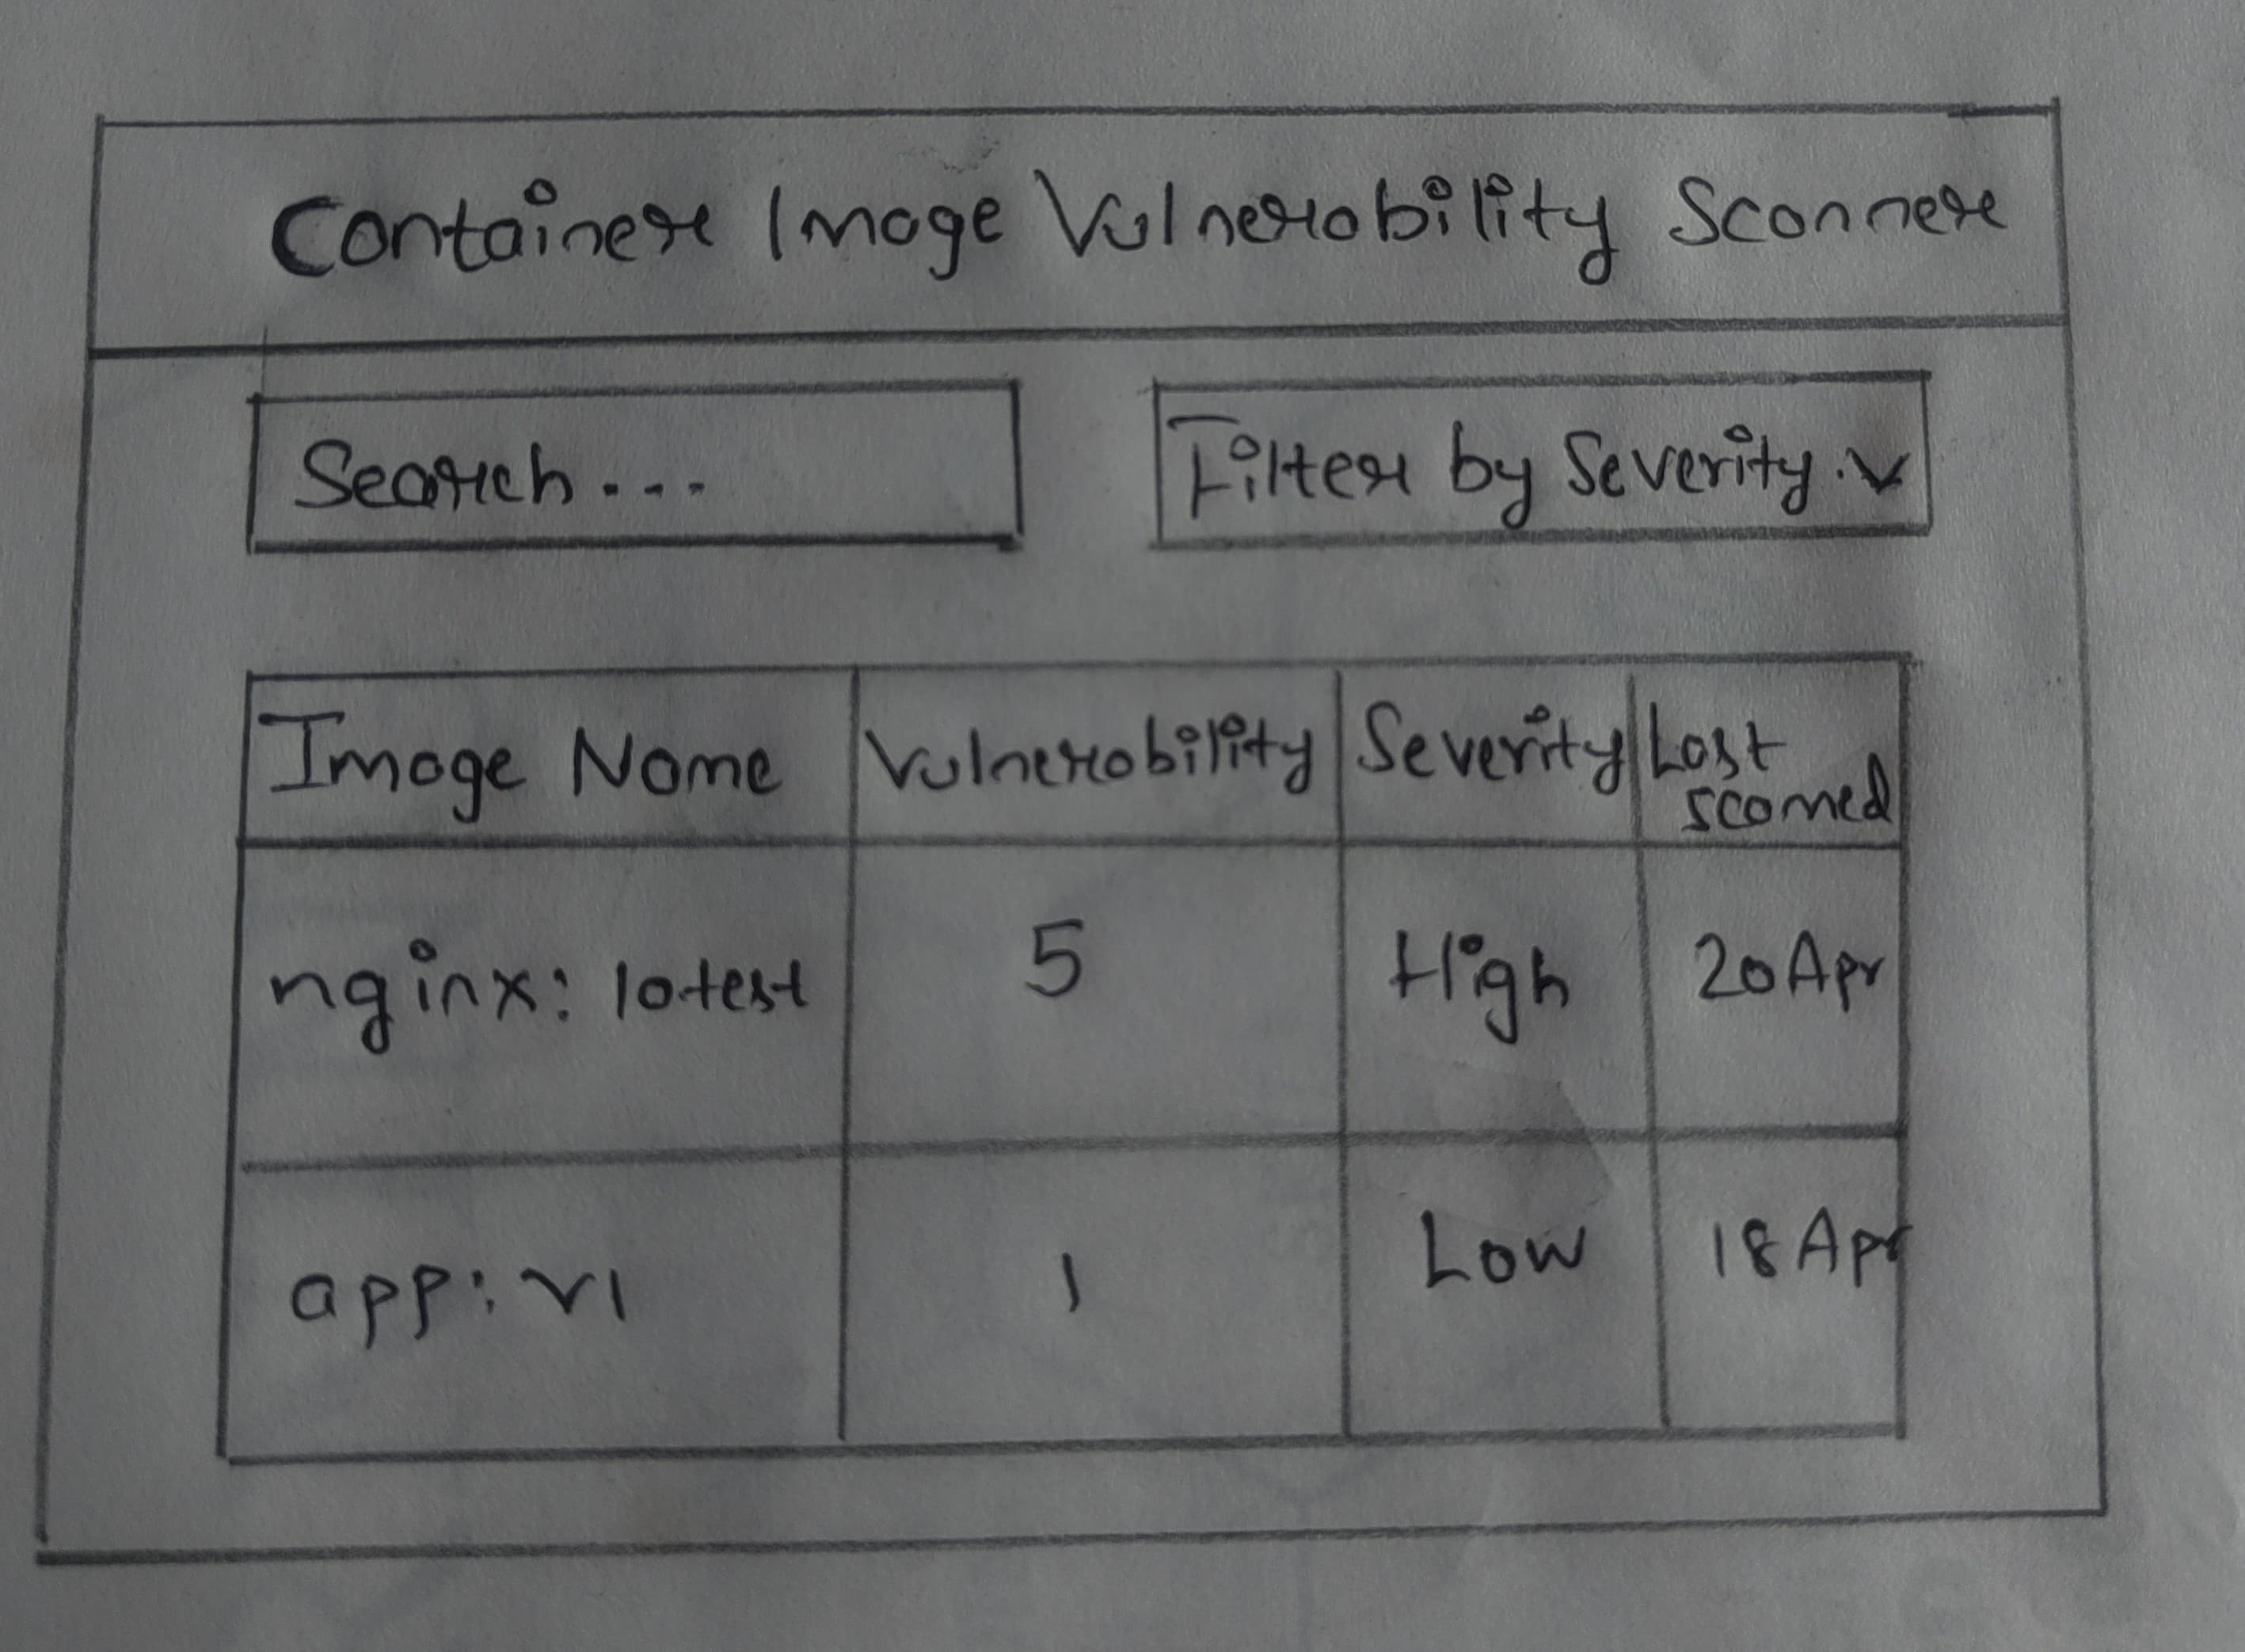 Container Image Vulnerability Scanner
Search...
Filter by Severity.v
Image Name Vulnerability Severity Last scanned
nginx: latest 5 High 20 Apr
app: v1 1 Low 18 Apr